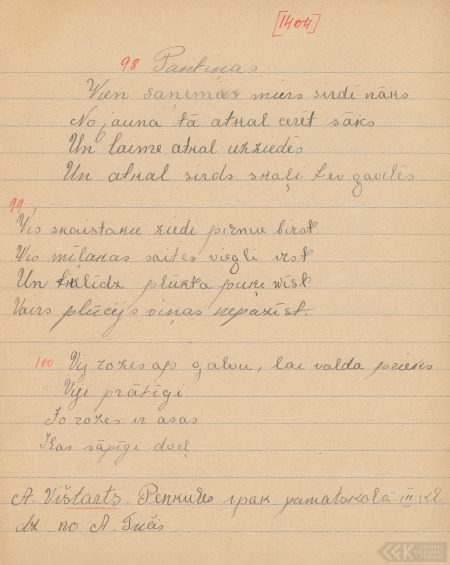 [1404]
98 Pantiņas
Vien saņemies miers sirdī nāks
No jauna tā atkal cerēt sāks
Un laime atkal uzziedēs
Un atkal sirds skaļi tev gavilēs
99
Vis skaistakie ziedi pirmie birst
Vis mīļakas saites viegli irst
Un līdz plūkta puķe wīst
Vairs plūcējs viņas nepazīst.
100 Vij rozes ap galvu, lai valda prieks
Vij prātīgi
Jo rozes ir asas
Kas sāpīgi dzeļ
A. Vištarts Penkules 1 pak. pamatskolā III kl.
dz. no A.